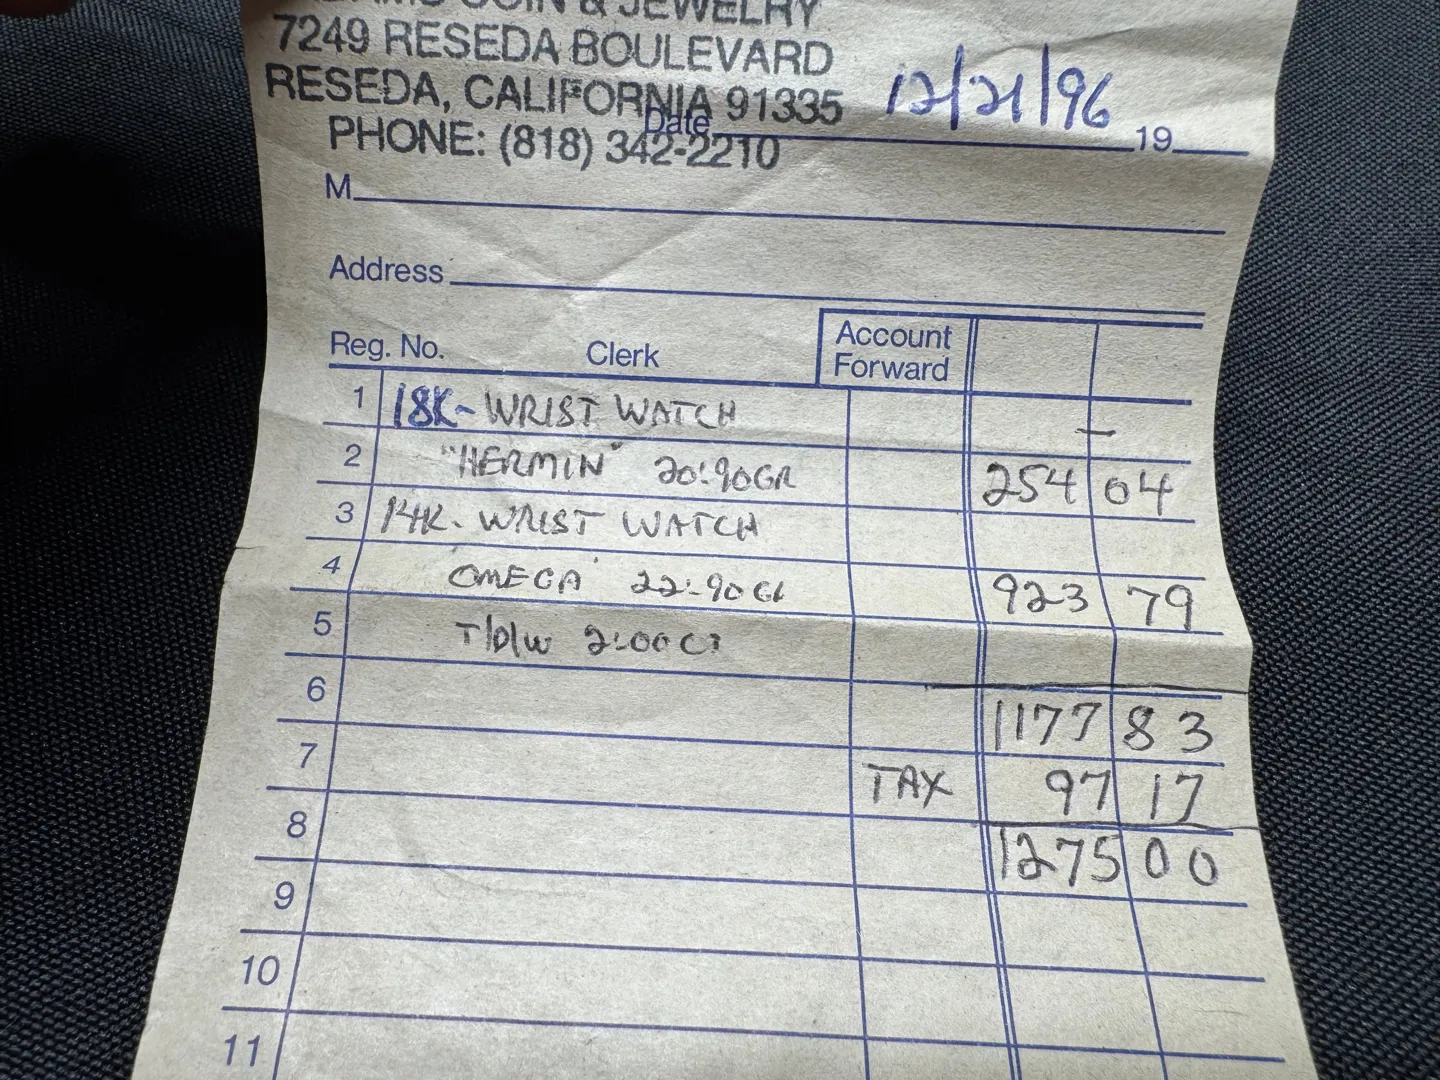 COIN & JEWELRY
7249 RESEDA BOULEVARD
RESEDA, CALIFORNIA 91335
PHONE: (818) 342-2210
Date 12/21/96 19
M.
Address
Reg. No. Clerk Account Forward
1 18K- WRIST WATCH
2 "HERMIN" 20:90GR 254 04
3 14K- WRIST WATCH
4 OMEGA 22:90 GR 923 79
5 T/D/W 2:00 CT
6 1177 83
7 TAX 97 17
8 1275 00
9
10
11